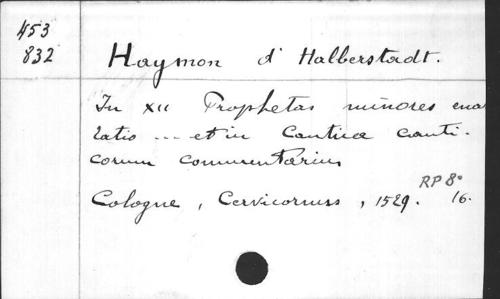 453
832
Haymon d' Halberstadt.
In XII Prophetas minores enar
ratio ... et in Cantica canti-
corum commentarius
Cologne, Cervicornus, 1529.
RP 8°
16.